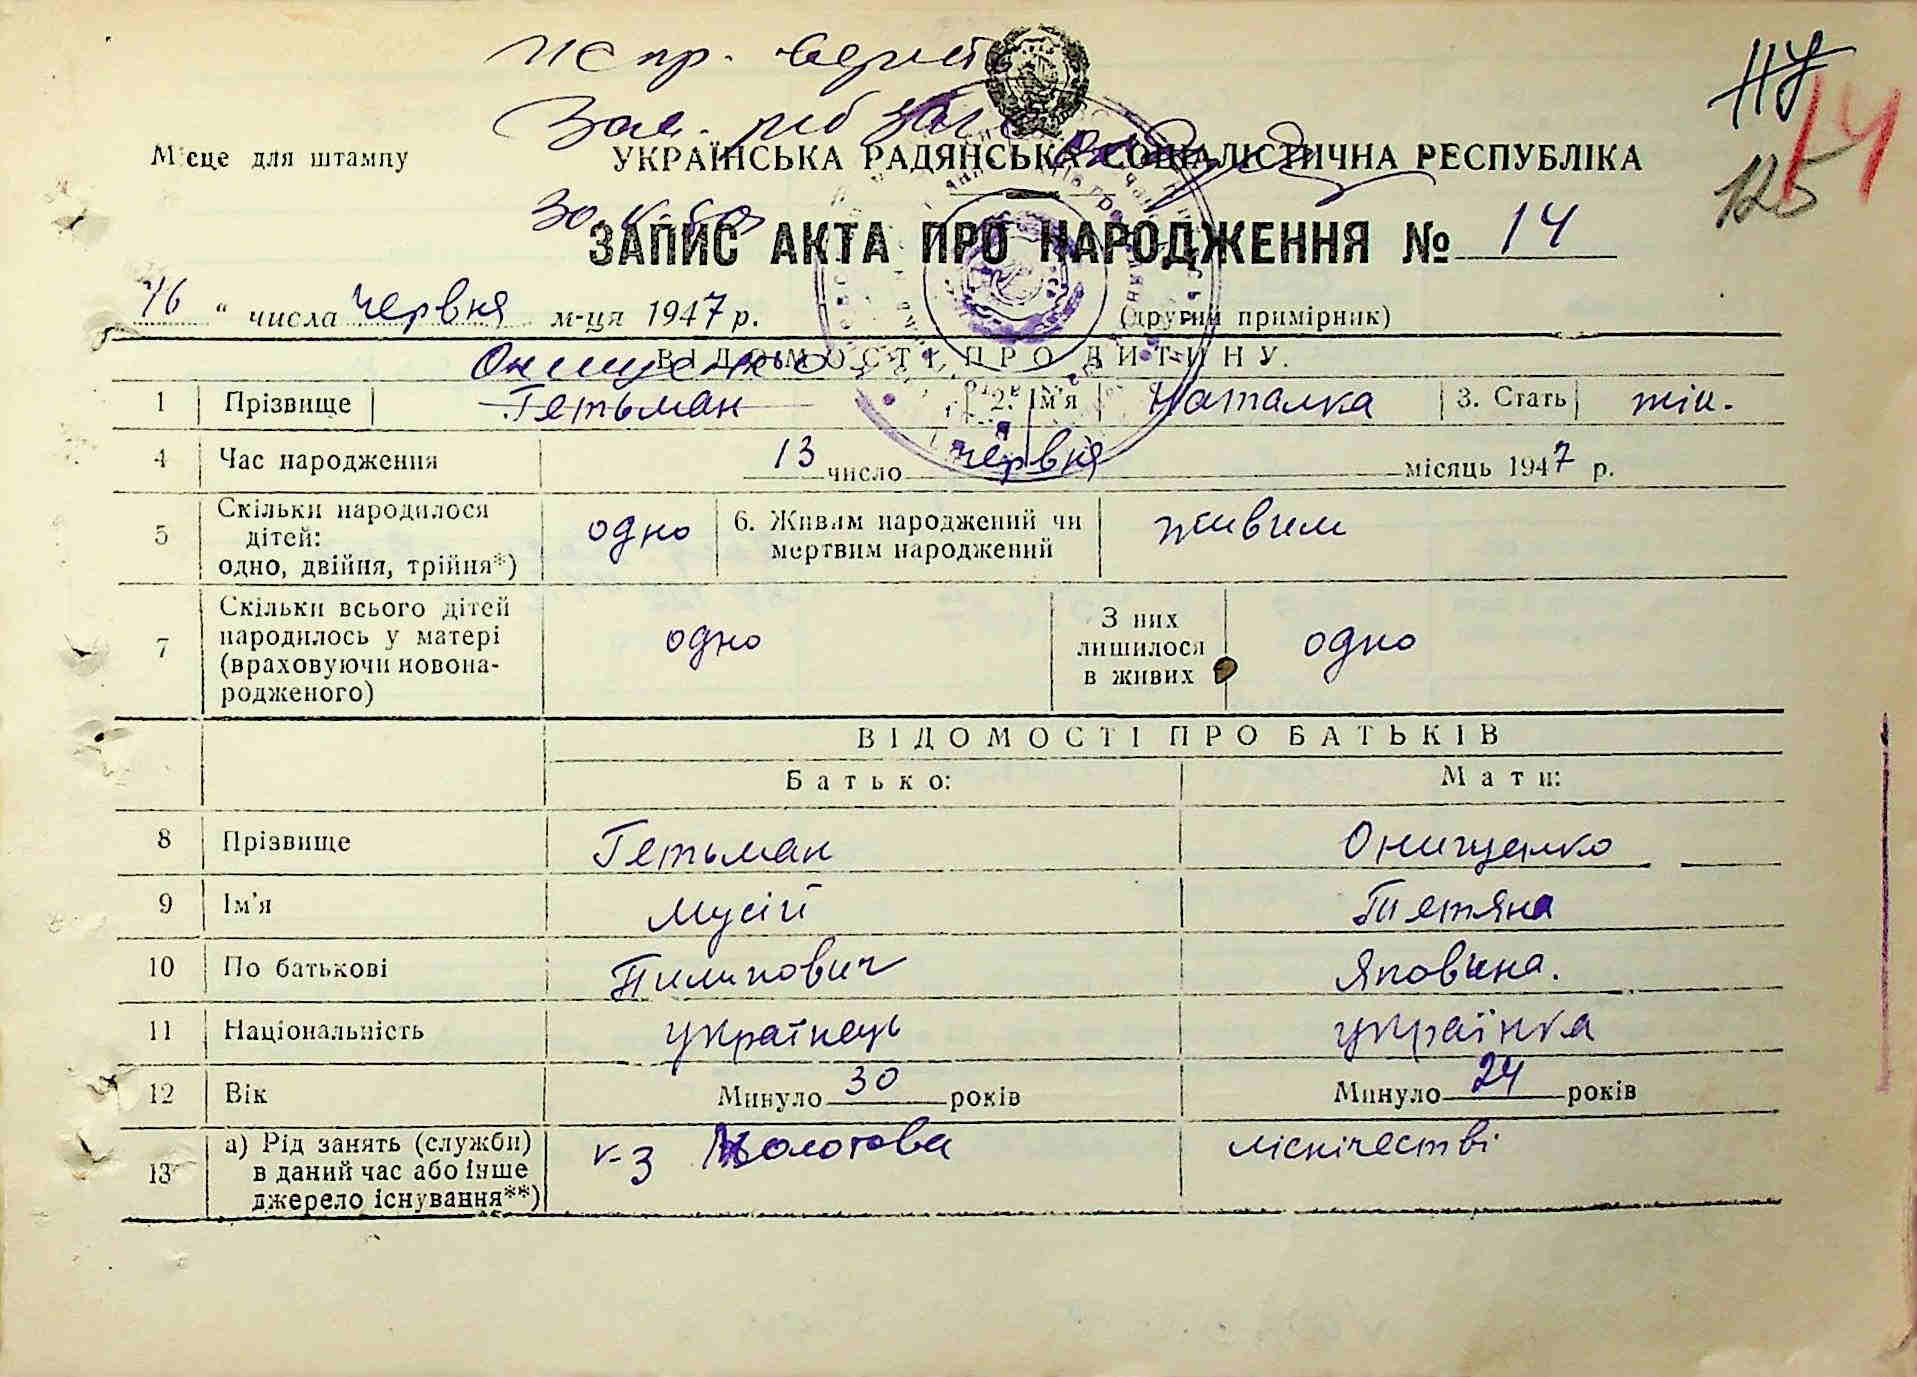 Испр. верить
Зав. раб ЗАГС
НУ
14
125
Місце для штампу
УКРАЇНСЬКА РАДЯНСЬКА СОЦІАЛІСТИЧНА РЕСПУБЛІКА
ЗАПИС АКТА ПРО НАРОДЖЕННЯ № 14
16 " числа червня м-ця 1947 р. (другий примірник)
ВІДОМОСТІ ПРО ДИТИНУ.
Онищенко
1 Прізвище Гетьман 2. Ім'я Наталка 3. Стать жін.
4 Час народження 13 число червня місяць 1947 р.
5 Скільки народилося дітей: одно, двійня, трійня*) одно 6. Живим народжений чи мертвим народжений живим
7 Скільки всього дітей народилось у матері (враховуючи новонародженого) одно З них лишилося в живих одно
ВІДОМОСТІ ПРО БАТЬКІВ
Батько: Мати:
8 Прізвище Гетьман Онищенко
9 Ім'я Мусій Тетяна
10 По батькові Пилипович Яковна.
11 Національність українець українка
12 Вік Минуло 30 років Минуло 24 років
13 а) Рід занять (служби) в даний час або інше джерело існування**) к-з Молотова лісничестві